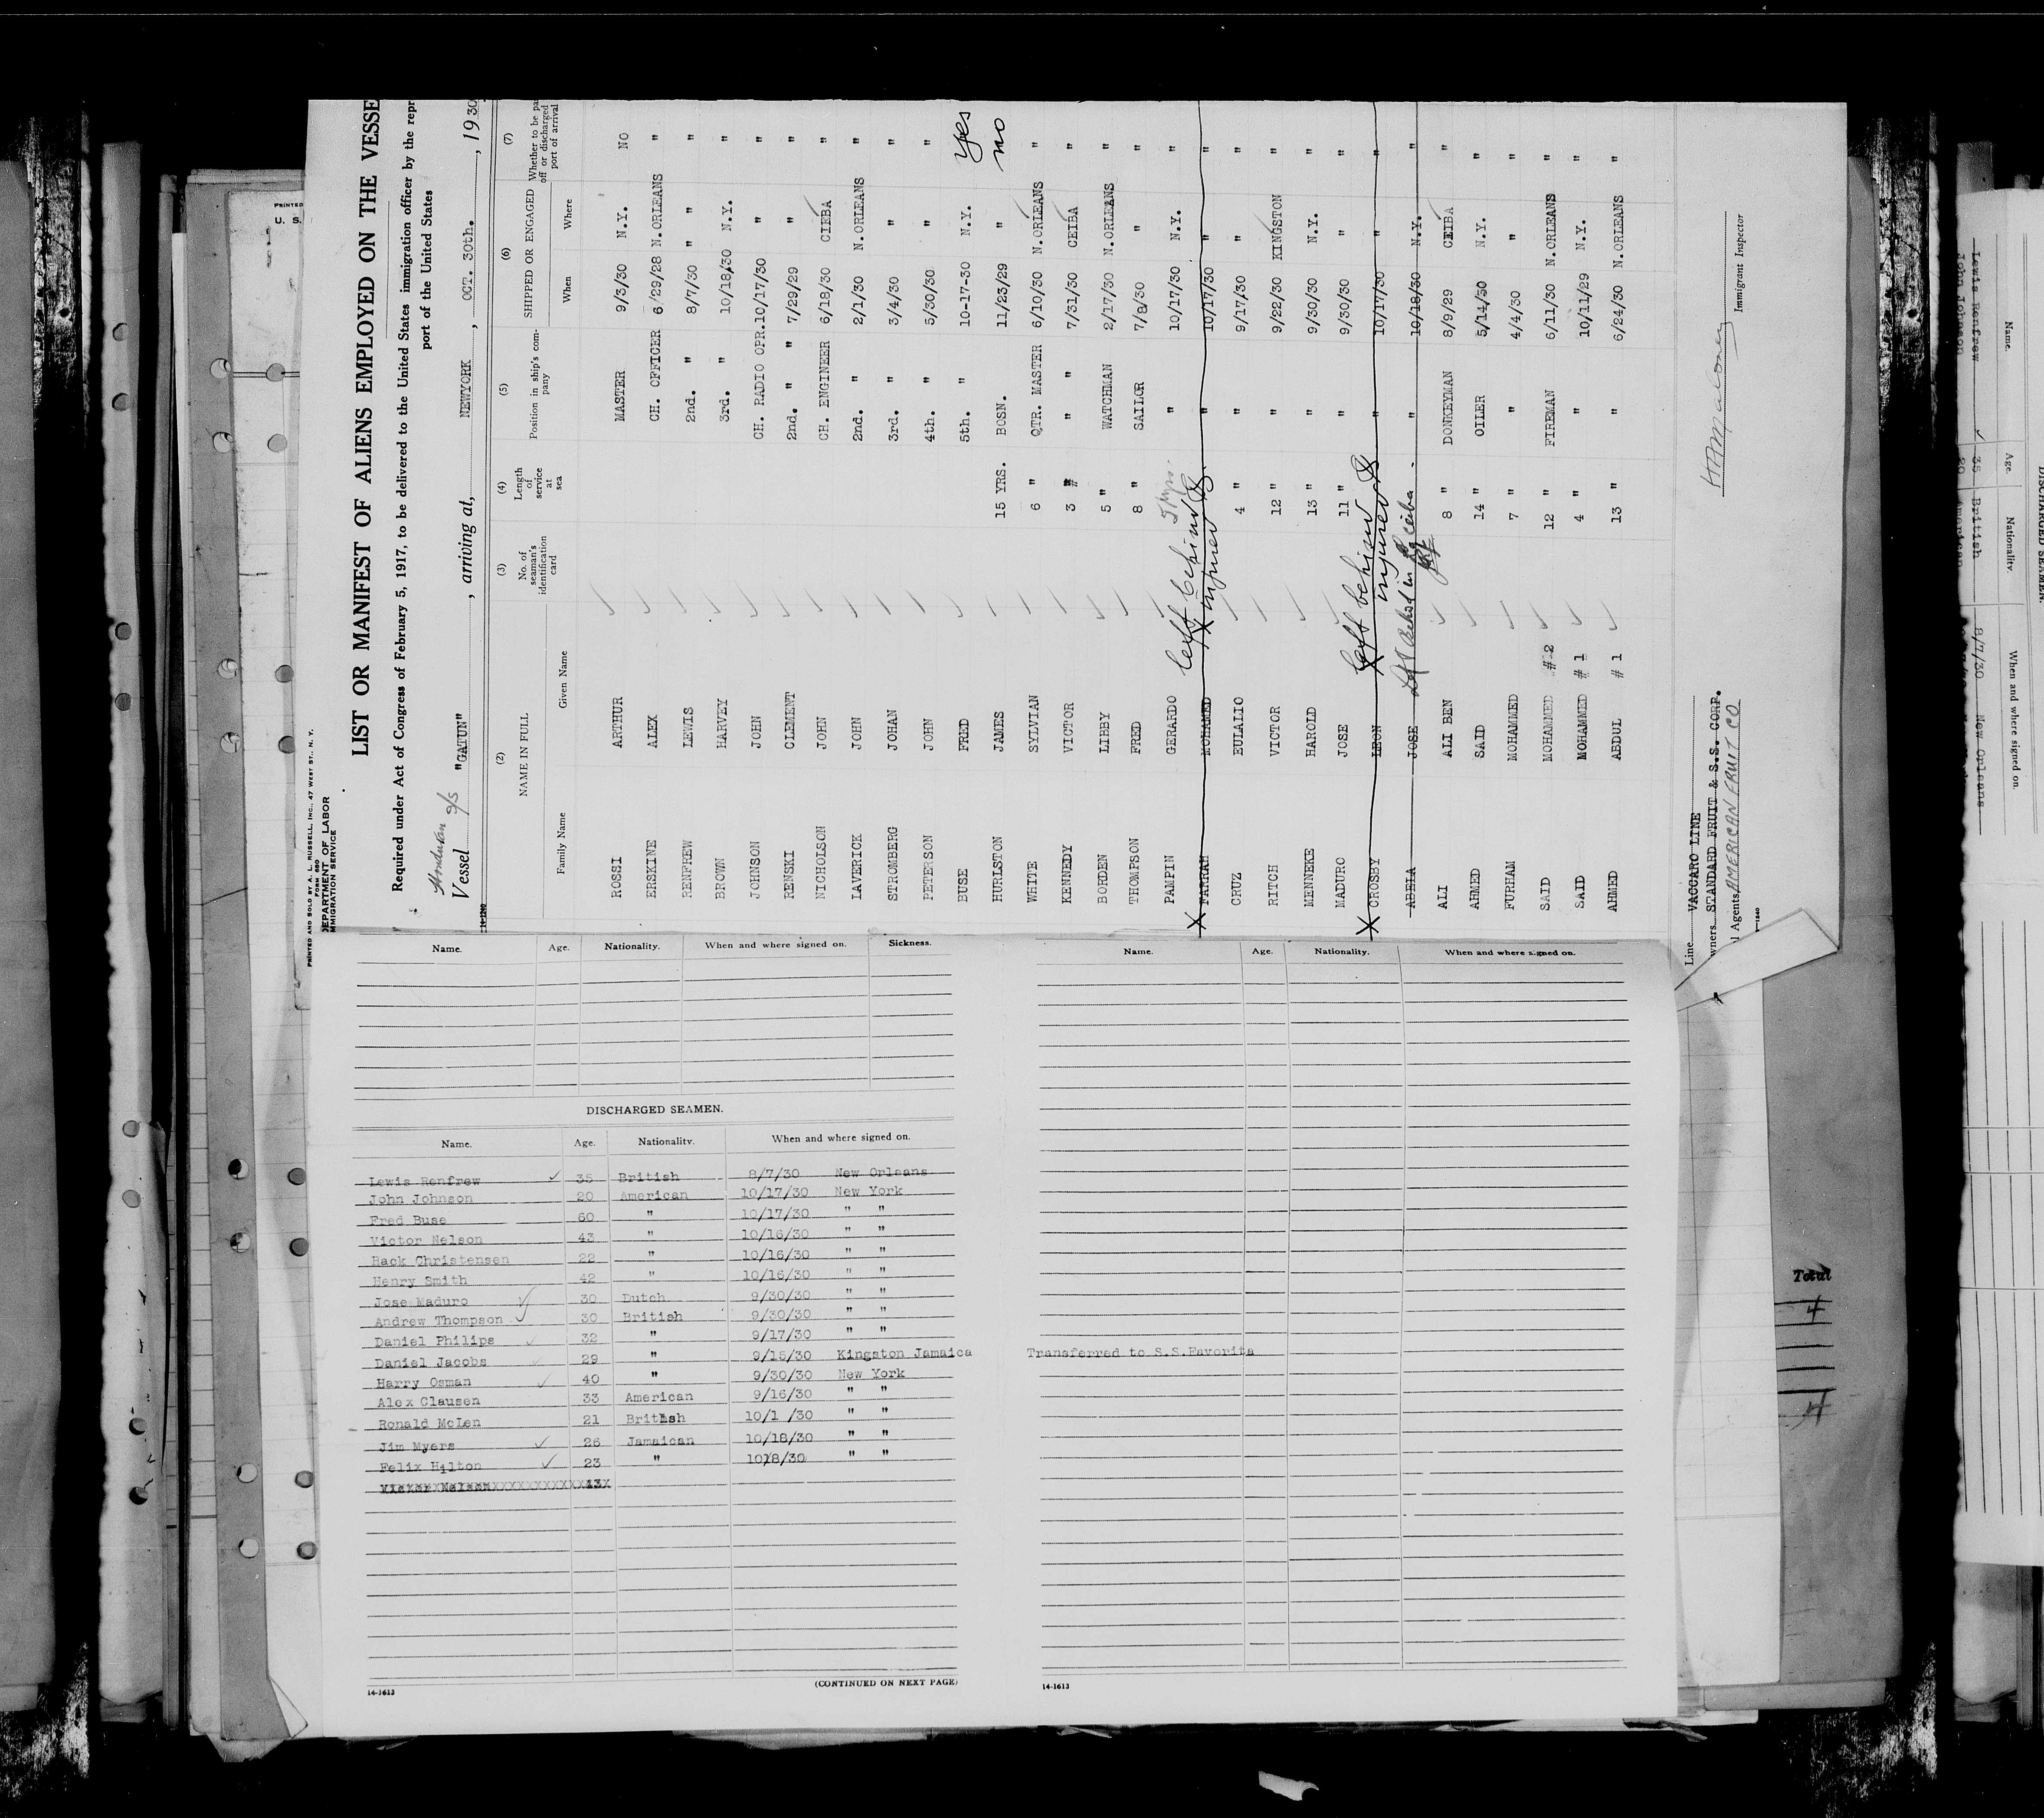 PRINTED AND SOLD BY A. L. RUSSELL, INC., 47 WEST ST., N. Y.
FORM 680
DEPARTMENT OF LABOR
IMMIGRATION SERVICE
LIST OR MANIFEST OF ALIENS EMPLOYED ON THE VESSE
Required under Act of Congress of February 5, 1917, to be delivered to the United States immigration officer by the repr
port of the United States
Honduran
Vessel S/S "GATUN" , arriving at, NEWYORK , OCT. 30th. , 1930
14-1240
(2) (3) (4) (5) (6) (7)
NAME IN FULL No. of seaman's identification card Length of service at sea Position in ship's company SHIPPED OR ENGAGED Whether to be pa off or discharged port of arrival
Family Name Given Name When Where
ROSSI ARTHUR MASTER 9/3/30 N.Y. NO
ERSKINE ALEX CH. OFFICER 6/29/28 N.ORLEANS "
RENFREW LEWIS 2nd. " 8/7/30 " " "
BROWN HARVEY 3rd. " 10/18/30 N.Y. "
JOHNSON JOHN CH. RADIO OPR. 10/17/30 " "
RENSKI CLEMENT 2nd. " " 7/29/29 " "
NICHOLSON JOHN CH. ENGINEER 6/18/30 CIEBA "
LAVERICK JOHN 2nd. " 2/1/30 N.ORLEANS "
STROMBERG JOHAN 3rd. " 3/4/30 " "
PETERSON JOHN 4th. " 5/30/30 " "
BUSE FRED 5th. " 10-17-30 N.Y. yes
HURLSTON JAMES 15 YRS. BOSN. 11/23/29 " no
WHITE SYLVIAN 6 " QTR. MASTER 6/10/30 N.ORLEANS "
KENNEDY VICTOR 3 " " " 7/31/30 CEIBA "
BORDEN LIBBY 5 " WATCHMAN 2/17/30 N.ORLEANS "
THOMPSON FRED 8 " SAILOR 7/8/30 " "
PAMPIN GERARDO " 10/17/30 N.Y. "
X FARRAH MOHAMED left behind injured " 10/17/30 " "
CRUZ EULALIO 4 " " 9/17/30 " "
RITCH VICTOR 12 " " 9/22/30 KINGSTON "
MENNEKE HAROLD 13 " " 9/30/30 N.Y. "
MADURO JOSE 11 " " 9/30/30 " "
X CROSBY LEON left behind injured " 10/17/30 " "
ABELA JOSE Left behind in Ceiba. " 10/18/30 N.Y. "
ALI ALI BEN 8 " DONKEYMAN 8/9/29 CEIBA "
AHMED SAID 14 " OILER 5/14/30 N.Y. "
FURHAM MOHAMMED 7 " " 4/4/30 " "
SAID MOHAMMED # 2 12 " FIREMAN 6/11/30 N.ORLEANS "
SAID MOHAMMED # 1 4 " " 10/11/29 N.Y. "
AHMED ABDUL # 1 13 " " 6/24/30 N.ORLEANS "
Line VACCARO LINE
wners STANDARD FRUIT & S.S. CORP.
l Agents AMERICAN FRUIT CO
Immigrant Inspector
Name. Age. Nationality. When and where signed on. Sickness.
DISCHARGED SEAMEN.
Name. Age. Nationality. When and where signed on.
Lewis Renfrew 35 British 8/7/30 New Orleans
John Johnson 20 American 10/17/30 New York
Fred Buse 60 " 10/17/30 " "
Victor Nelson 43 " 10/16/30 " "
Hack Christensen 22 " 10/16/30 " "
Henry Smith 42 " 10/16/30 " "
Jose Maduro 30 Dutch 9/30/30 " "
Andrew Thompson 30 British 9/30/30 " "
Daniel Philips 32 " 9/17/30 " "
Daniel Jacobs 29 " 9/15/30 Kingston Jamaica Transferred to S.S.Favorita
Harry Osman 40 " 9/30/30 New York
Alex Clausen 33 American 9/16/30 " "
Ronald McLen 21 British 10/1 /30 " "
Jim Myers 26 Jamaican 10/18/30 " "
Felix Hilton 23 " 1018/30 " "
Victor Nelson 43
14-1613
(CONTINUED ON NEXT PAGE)
Name. Age. Nationality. When and where signed on.
14-1613
PRINTED
U. S.
Total
4
4
DISCHARGED SEAMEN.
Name. Age. Nationality. When and where signed on.
Lewis Renfrew 35 British 8/7/30 New Orleans
John Johnson 20 American